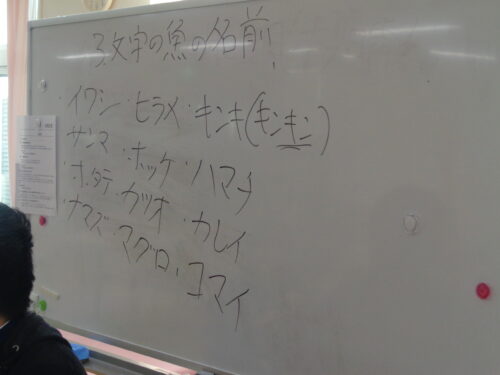 3文字の魚の名前!
・イワシ・ヒラメ・キンキ(キンキン)
サンマ・ホッケ・ハマチ
・ホタテ・カツオ・カレイ
・ナマズ・マグロ・コマイ